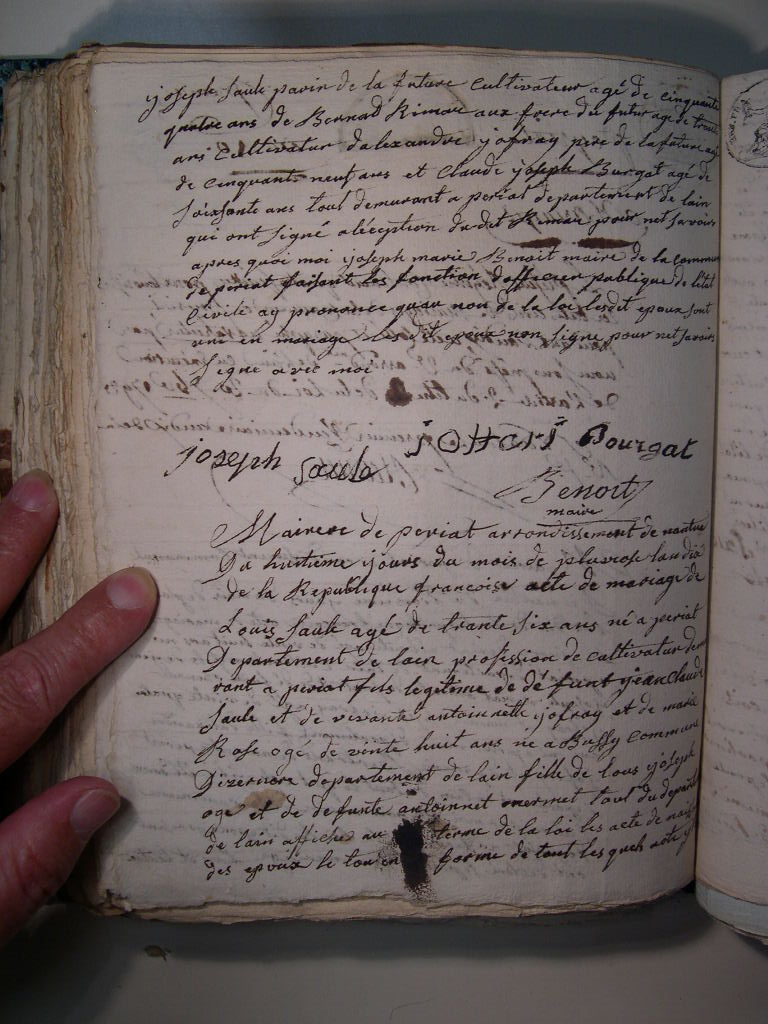 joseph saule parin de la future cultivateur agé de cinquante
quatre ans de Bernard Rimau aux frere du futur age de trente
ans cultivatur dalexandre jofray pere de lafuture agé
de cinquant neuf ans et Claude joseph Burgat agé de
soixsante ans tout demurant a periat departement de lain
qui ont signé aléception dudit Rimau pour net savoir
apres quoi moi joseph marie Benoit maire de la commune
de periat faisant les fonction dofficier publique de létat
Civile ay prononcé quau non de la loi lesdit epoux sont
unie en mariage lesdit epoux non signe pour net savoir
signe avec moi
joseph saule joffart Bourgat
Benoit
maire
Mairere de periat arrondissement de nantua
Du huitieme jours du mois de pluviose lan dix
de la Republique francoise acte de mariage de
Louis saule agé de trante six ans né a periat
Departement de lain profession de cultivatur demu
rant a periat fils legitime de défunt jean Claude
saule et de vivante antoinette jofray et de marie
Rose ogé de vinte huit ans né a Bussy Commune
Dizernore departement de lain fille de Lous joseph
oge et de defunte antoinnet mermet tout du departemt
de lain affiche au terme de la loi les acte de nais
des epoux le tou en forme de tout les quels acte